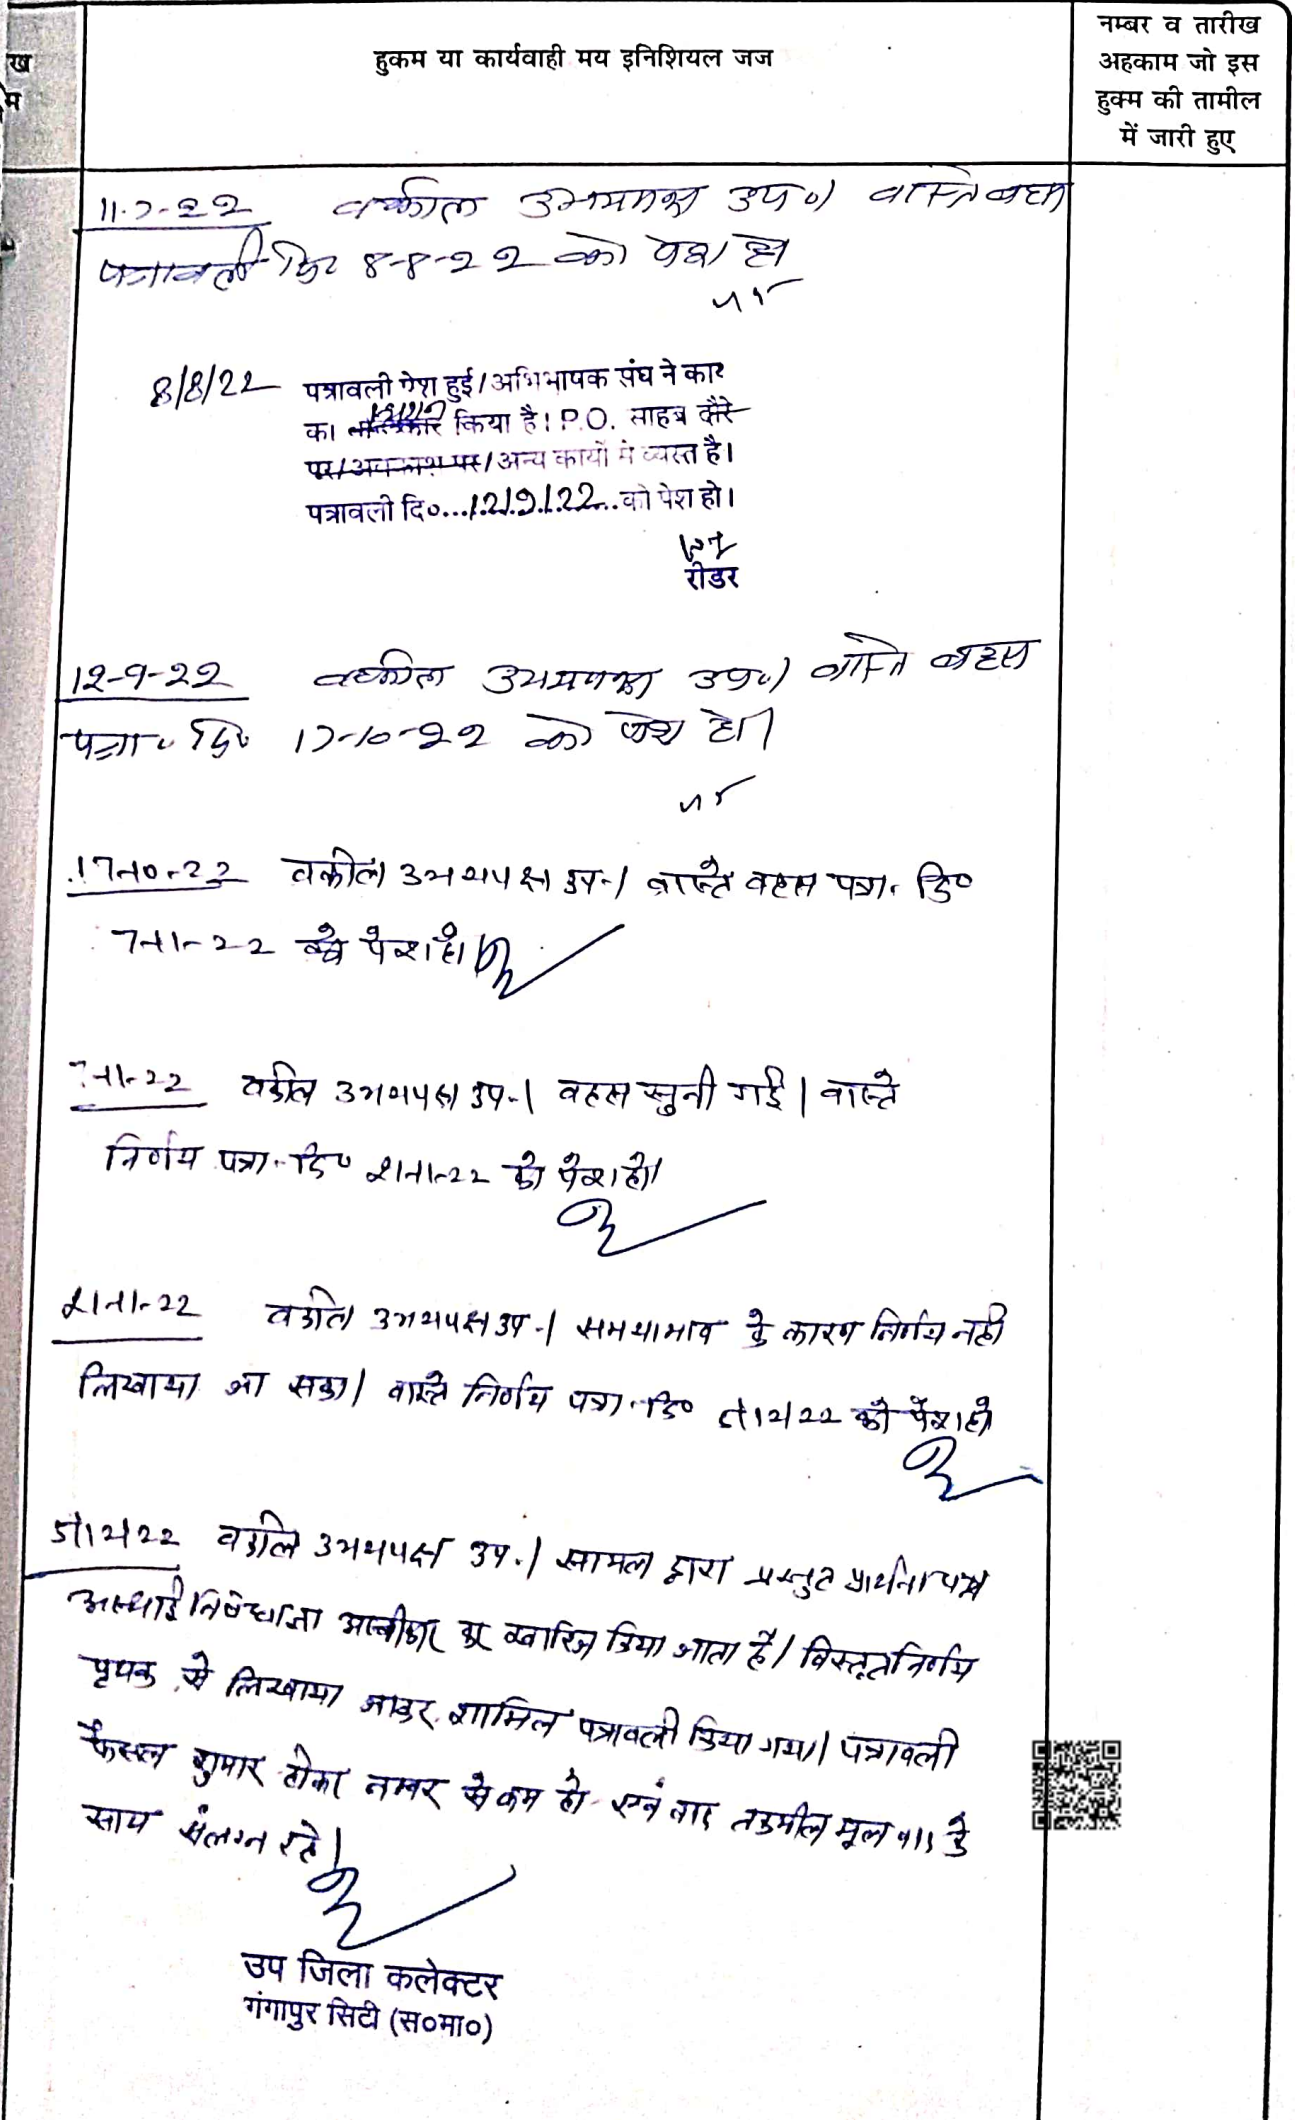 ख
म
हुकम या कार्यवाही मय इनिशियल जज
नम्बर व तारीख
अहकाम जो इस
हुक्म की तामील
में जारी हुए
11-7-22 वकील उभयपक्ष उप०। वास्ते बहस
पत्रावली दि० 8-8-22 को पेश हो
8/8/22 पत्रावली पेश हुई। अभिभाषक संघ ने कार्य
का किया है। P.O. साहब दौरे
पर/अवकाश पर/अन्य कार्यो मे व्यस्त है।
पत्रावली दि०...12/9/22...को पेश हो।
रीडर
12-9-22 वकील उभयपक्ष उप०। वास्ते बहस
पत्रा० दि० 17-10-22 को पेश हो।
17-10-22 वकील उभयपक्ष उप.। वास्ते बहस पत्रा. दि०
7-11-22 को पेश हो।
7-11-22 वकील उभयपक्ष उप.। बहस सुनी गई। वास्ते
निर्णय पत्रा. दि० 21-11-22 को पेश हो।
21-11-22 वकील उभयपक्ष उप.। समयाभाव के कारण निर्णय नही
लिखाया जा सका। वास्ते निर्णय पत्रा. दि० 5/12/22 को पेश हो
5/12/22 वकील उभयपक्ष उप.। सायल द्वारा प्रस्तुत प्रार्थना पत्र
अस्थाई निषेधाज्ञा अस्वीकार कर खारिज किया जाता है। विस्तृत निर्णय
पृथक से लिखाया जाकर शामिल पत्रावली किया गया। पत्रावली
फैसल शुमार होकर नम्बर से कम हो एवं बाद तकमील मूल वाद के
साथ संलग्न रहे।
उप जिला कलेक्टर
गंगापुर सिटी (स०मा०)